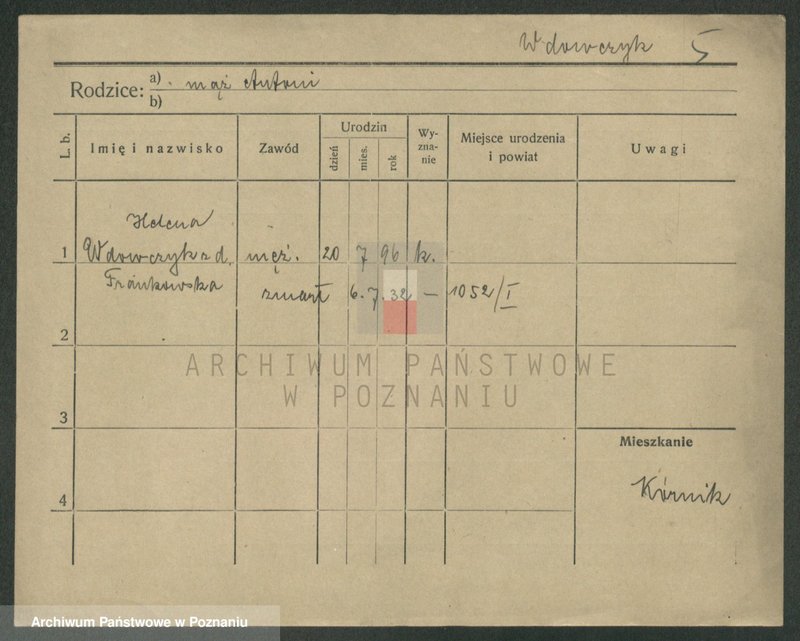 Wdowczyk 5
Rodzice: a) mąż Antoni
b)
L. b. Imię i nazwisko Zawód Urodzin dzień mies. rok Wy-zna-nie Miejsce urodzenia i powiat Uwagi
Helena
1 Wdowczyk z d. męż. 20 7 96 k.
Frankowska
zmarł 6. 7. 32 — 1052/I
2
ARCHIWUM PAŃSTWOWE
W POZNANIU
3
Mieszkanie
Kórnik
4
Archiwum Państwowe w Poznaniu